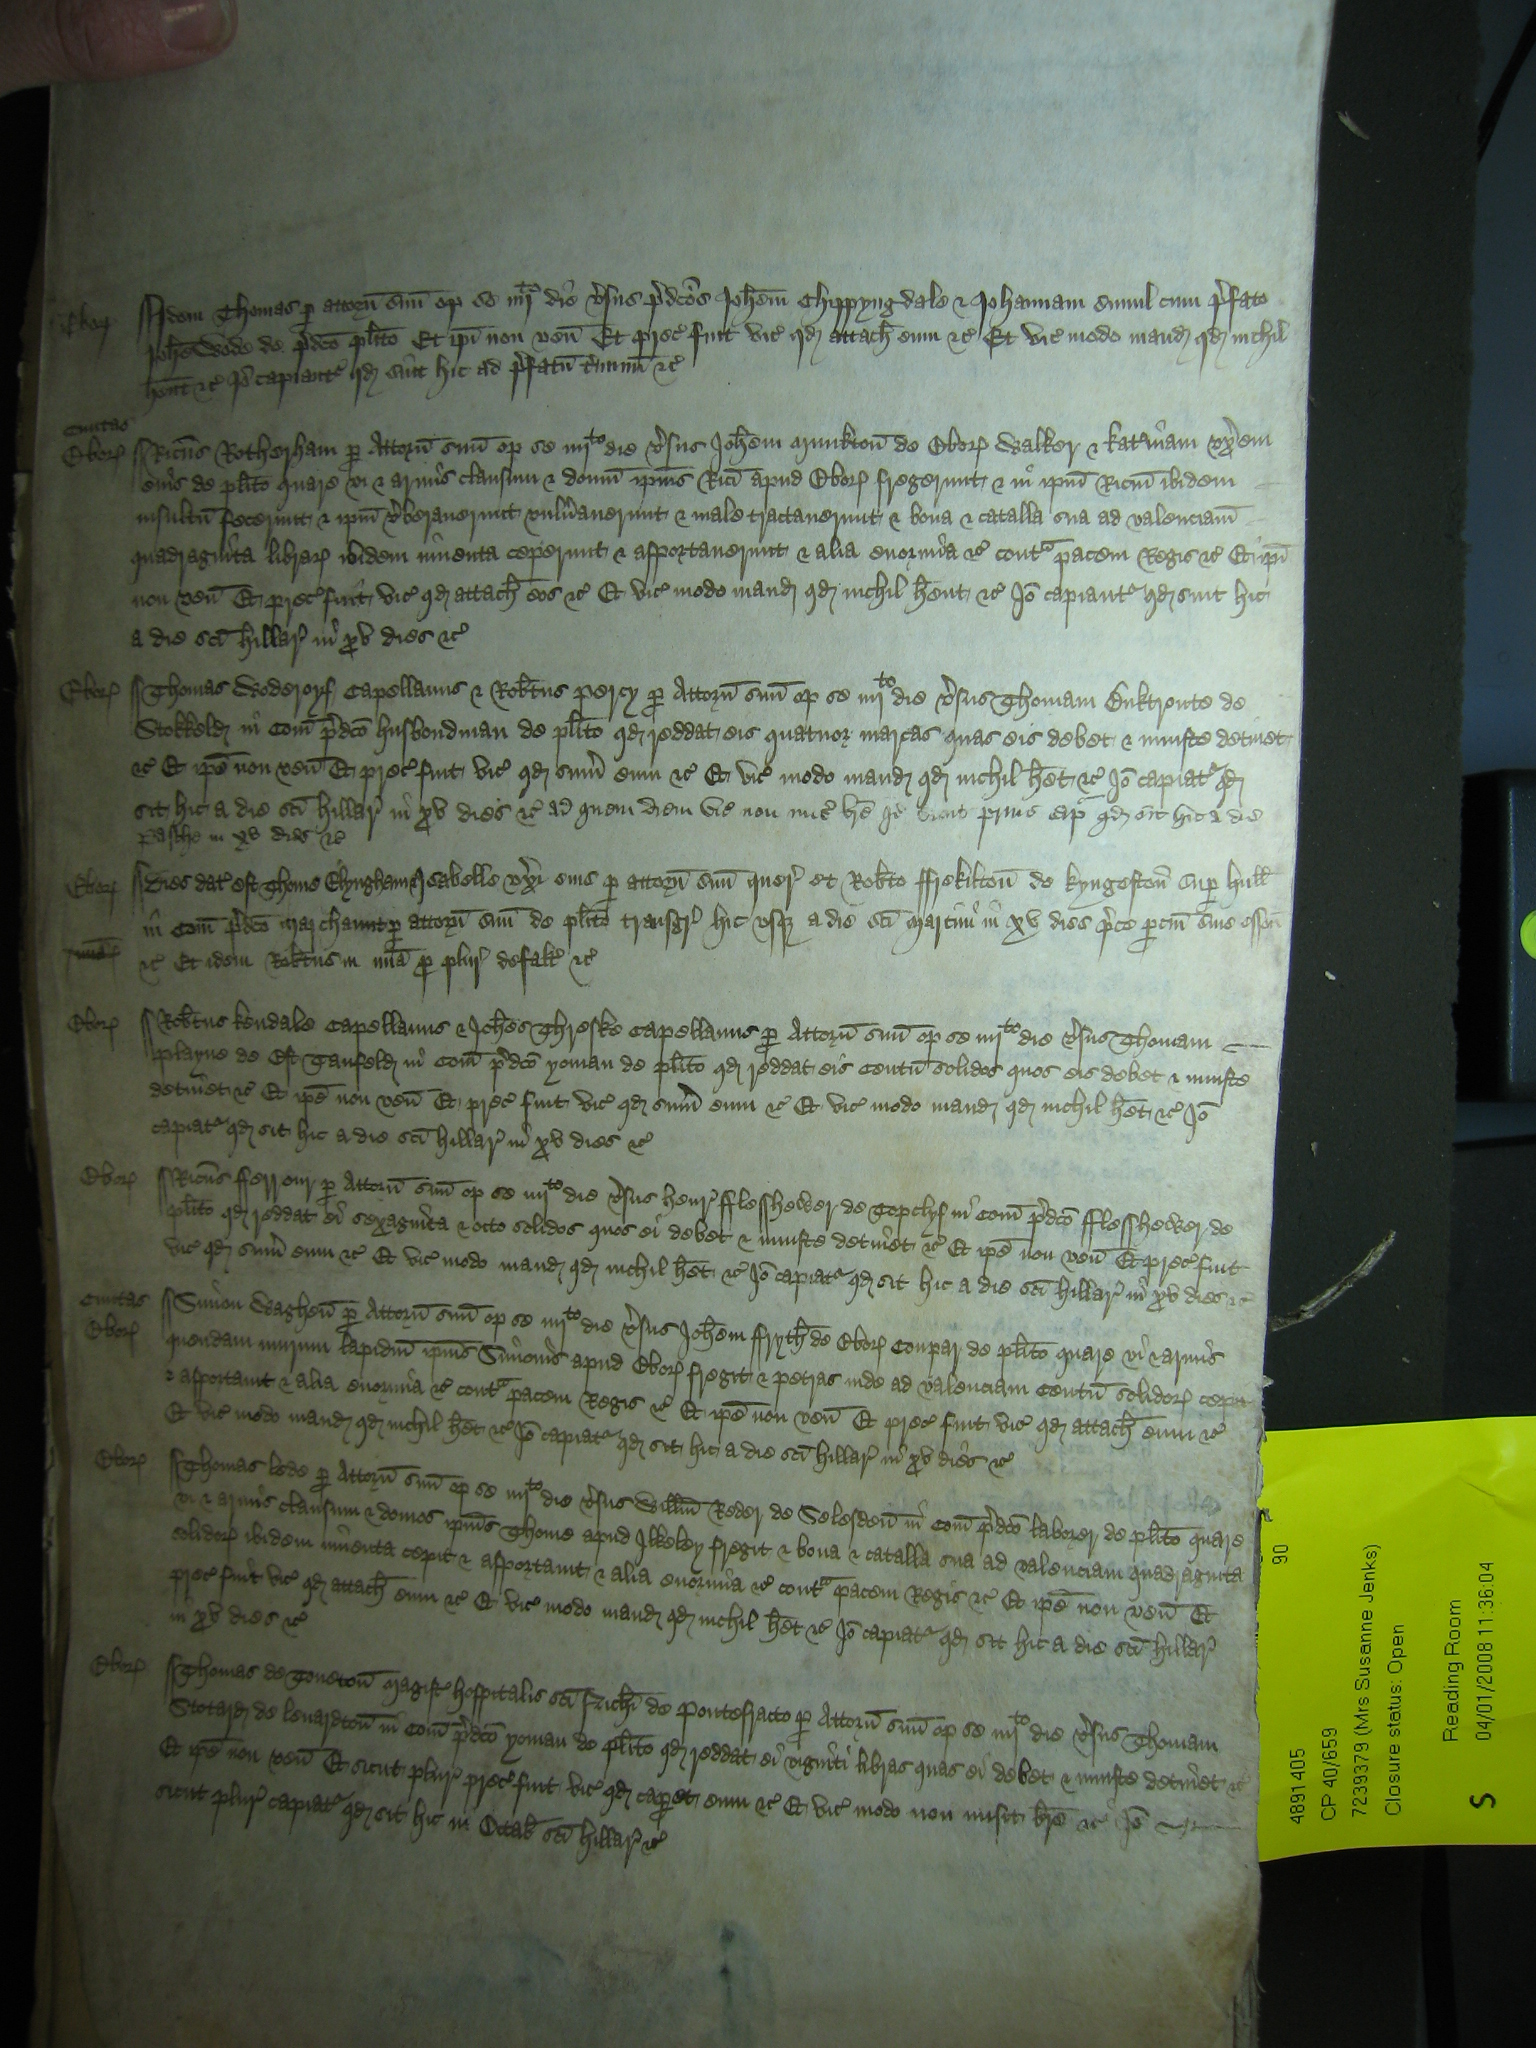 Ebor Idem Thomas p attorn suu op se iiijto die vsus pdcos Johem Chippyngdale & Johannam simul cum pfato
Johe Wode de pdco plito Et ipi non ven Et prec fuit vic qd attach eum &c Et vic modo mand qd nichil
hent &c Io capiantr qd sint hic ad pfatu tminu &c
Civitas
Ebor Ricus Rotherham p Attorn suu op se iiijto die vsus Johem Munkton de Ebor Walker & Katinam vxem
eius de plito quare vi & armis clausum & domu ipius Rici apud Ebor fregerunt & in ipm Ricm ibidem
insultu fecerunt & ipm vberaverunt vulnaverunt & male tractaverunt & bona & catalla sua ad valenciam
quadraginta librar ibidem inventa ceperunt & asportaverunt & alia enormia &c contra pacem Regis &c Et ipi
non ven Et prec fuit vic qd attach eos &c Et vic modo mand qd nichil hent &c Io capiantr qd sint hic
a die sci Hillar in xv dies &c
Ebor Thomas Woderoff Capellanus & Robtus Percy p Attorn suu op se iiijto die vsus Thomam de
Stokkeld in Com pdco husbondman de plito qd reddat eis quatuor marcas quas eis debet & iniuste detinet
&c Et ipe non ven Et prec fuit vic qd sum eum &c Et vic modo mand qd nichil het &c Io capiatr qd
sit hic a die sci Hillar in xv dies &c ad quem diem vic non mis bre Io sicut prius cap qd sit hic a die
Pasche in xv dies &c
Ebor Dies dat est Thome Elyngham & Isabelle vxi eius p attorn suu quer et Robto ffrekilton de Kyngeston sup Hull
in Com pdco Marchaunt p attorn suu de plito transgr hic vsq a die sci Martini in xv dies pce parciu sine esson
&c Et idem Robtus in mia p plur defalt &c
Ebor Robtus Kendale Capellanus & Johes Thresk Capellanus p Attorn suu op se iiijto die vsus Thomam
Playne de Est Tanfeld in Com pdco yoman de plito qd reddat eis centu solidos quos eis debet & iniuste
detinet &c Et ipe non ven Et prec fuit vic qd sum eum &c Et vic modo mand qd nichil het &c Io
capiatr qd sit hic a die sci Hillar in xv dies &c
Ebor Ricus fferrour p Attorn suu op se iiijto die vsus Henr fflesshewer de Topclyf in Com pdco fflesshewer de
plito qd reddat ei sexaginta & octo solidos quos ei debet & iniuste detinet &c Et ipe non ven Et prec fuit
vic qd sum eum &c Et vic modo mand qd nichil het &c Io capiatr qd sit hic a die sci Hillar in xv dies &c
Civitas
Ebor Simon Waghen p Attorn suu op se iiijto die vsus Johem ffryth de Ebor Coupar de plito quare vi & armis
quendam murum lapidiu ipius Simonis apud Ebor fregit & petras inde ad valenciam centu solidor cepit
& asportavit & alia enormia &c contra pacem Regis &c Et ipe non ven Et prec fuit vic qd attach eum &c
Et vic modo mand qd nichil het &c Io capiatr qd sit hic a die sci Hillar in xv dies &c
Ebor Thomas lede p Attorn suu op se iiijto die vsus Willm Reder de Selesden in Com pdco laborer de plito quare
vi & armis clausum & domos ipius Thome apud Ilkeley fregit & bona & catalla sua ad valenciam quadraginta
solidor ibidem inventa cepit & asportavit & alia enormia &c contra pacem Regis &c Et ipe non ven Et
prec fuit vic qd attach eum &c Et vic modo mand qd nichil het &c Io capiatr qd sit hic a die sci Hillar
in xv dies &c
Ebor Thomas de Toueton Magistr hospitalis sci Nichi de Pontefracto p Attorn suu op se iiijto die vsus Thomam
de in Com pdco yoman de plito qd reddat ei viginti libras quas ei debet & iniuste detinet &c
Et ipe non ven Et sicut plur prec fuit vic qd caperet eum &c Et vic modo non misit bre &c Io
sicut plur capiatr qd sit hic in Octab sci Hillar &c
4891405 90
CP 40/659
7239379 (Mrs Susanne Jenks)
Closure status: Open
Reading Room
S 04/01/2008 11:36:04